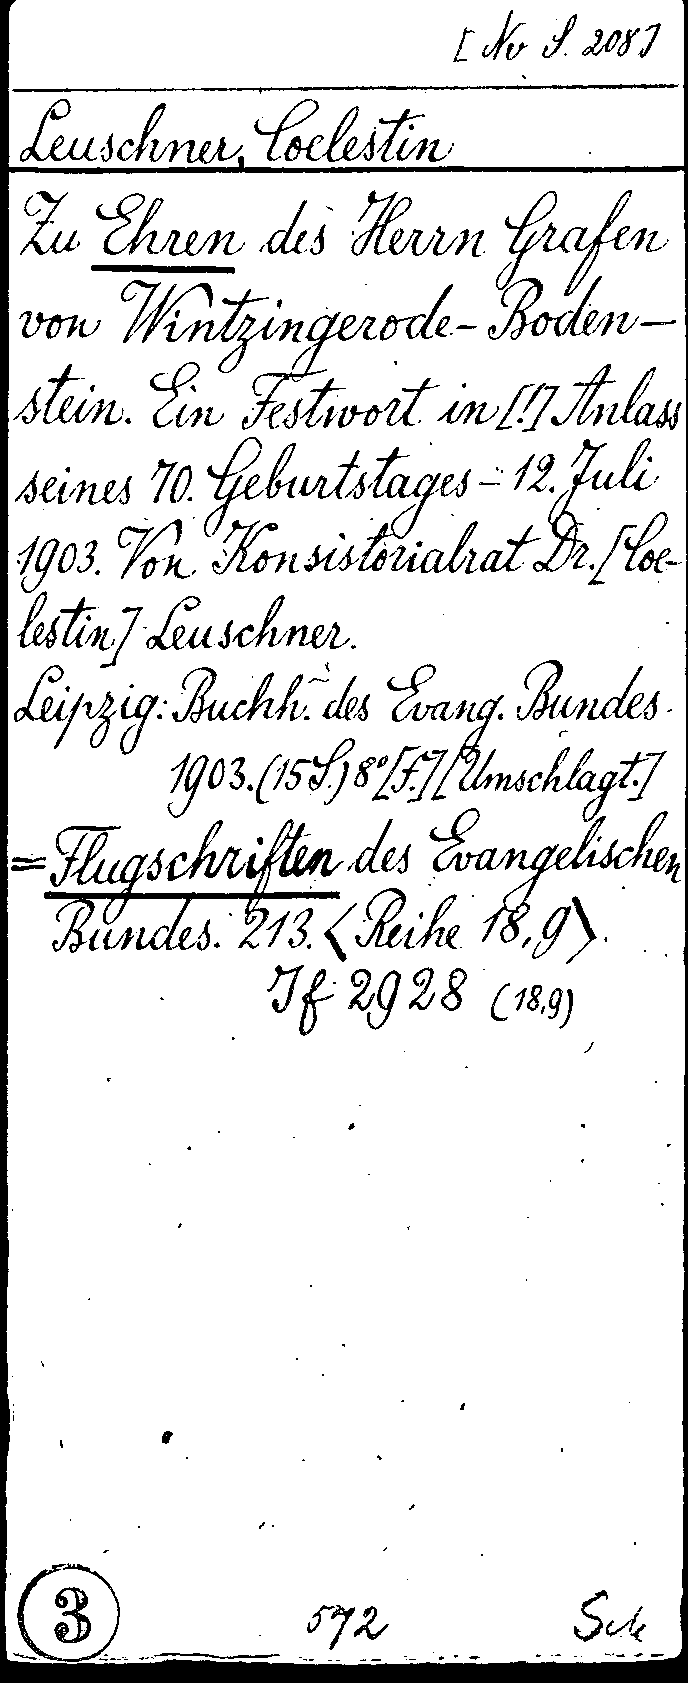 [Nv S. 208]
Leuschner, Coelestin
Zu Ehren des Herrn Grafen
von Wintzingerode-Boden-
stein. Ein Festwort in [!] Anlass
seines 70. Geburtstages - 12. Juli
1903. Von Konsistorialrat Dr. [Coe-
lestin] Leuschner.
Leipzig: Buchh. des Evang. Bundes
1903. (15 S.) 8° [f.] [Umschlagt.]
= Flugschriften des Evangelischen
Bundes. 213. <Reihe 18,9>.
If 2928 (18,9)
3 572 Sch